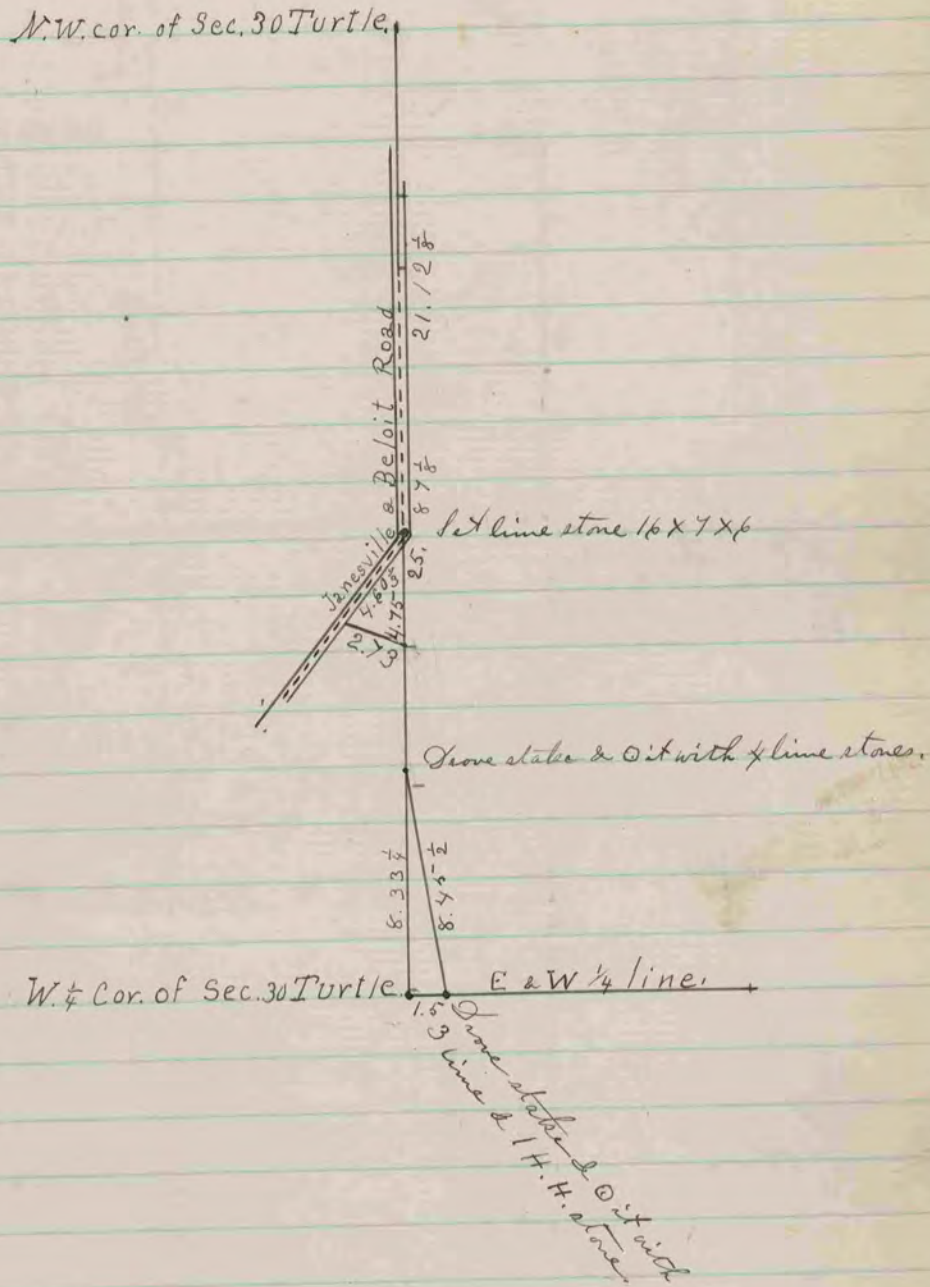 N.W. cor. of Sec. 30 Turtle.
21.12 1/8
Janesville & Beloit Road
8 7 1/8
Set lime stone 16 X 7 X 6
25.
4.60
4.75
2.73
Drove stake & ⊙ it with 4 lime stones.
8.33 1/4
8.44 1/2
W. 1/4 Cor. of Sec. 30 Turtle.
E & W 1/4 line.
1.5
Drove stake & ⊙ it with
3 lime & 1 H.H. stone.